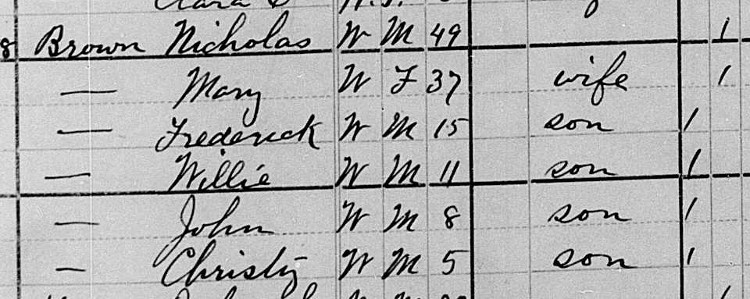 Clara
8 Brown Nicholas W M 49 1
— Mary W F 37 wife 1
— Frederick W M 15 son 1
— Willie W M 11 son 1
— John W M 8 son 1
— Christy W M 5 son 1